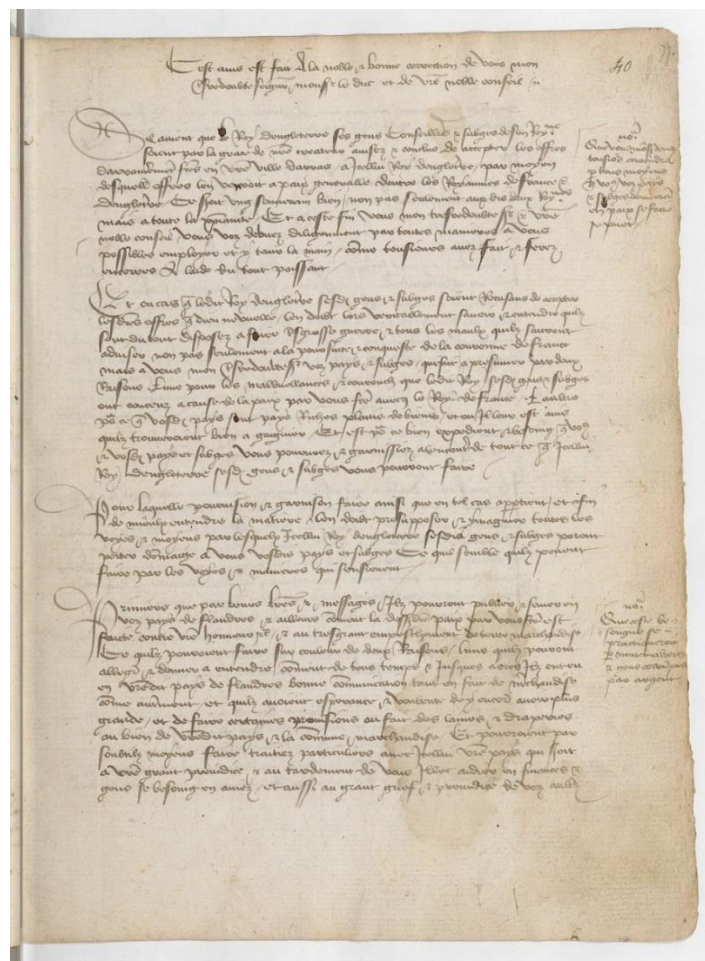 Cest avis est fait A la noble & bonne correction de vous mon
Tresredoubte seigneur, monss le duc et de vre noble conseil
40
Sil avient que le Roy dengleterre ses gens Conseilliers & subges de son Roy.me
soient par la grace de nre createur avisez & conclus de accepter les offres
darrainement fctes en vre ville darras a Icellui Roy dengleterre, par moyen
desquelles offres len venroit a paix generalle dentre les Royaumes de france &
dengleterre Ce seroit ung souverain bien, non pas seulement aux dis deux Roy.mes
mais a toute la Et a ceste fin vous mon tresredoubte sr & vre
noble conseil vous devez diligemment par toutes manieres a vous
possibles employer et y tenir la main, come tousiours avez fait & ferez
encores A laide du tout puissant
Et ou cas q ledit Roy dengleterre sesds gens & subges soient Reffusans de accepter
lesdites offres q dieu ne vueille, len doit lors veritablement savoir & entendre quilz
sont du tout disposez a faire grosse guerre & tous les maulx quilz sauront
adviser non pas seulement a la poursuite & conqueste de la couronne de france
mais a vous mon tresredoubte sr voz pays & subges, qui fait a presumer par deux
Raisons Lune pour les malvueillances & couroux que ledit Roy sesds gens & subges
ont conceuz a cause de la paix par vous fcte avecq le Roy de france Et laultre
po ce q vosds pays sont pays Riches plains de biens, et ou Il leur est avis
quilz trouveroient bien a gaigner Et est po ce bien expedient & besoing q vous
& vosds pays et subges vous pourveez & garnissiez alencontre de tout ce q Icellui
Roy dengleterre sesds gens & subges vous pourront faire
Pour laquelle pourveusion & garnison faire ainsi que en tel cas appartient, et afin
de mieulx entendre la matiere, len doit presupposer & ymaginer toutes les
voyes & moyens par lesquelx Icellui Roy dengleterre sesds gens & subges porront
porter dommaige a vous vosds pays et subges Ce que semble quilz peuvent
faire par les voyes & manieres qui sensuivent
Primiers que par leurs lres & messages, Ilz pourront publier & semer en
voz pays de flandres & ailleurs coment la dessdte paix par vous fcte est
faicte contre vre honneur & au tresgrant empeschement de toute marchandise
Ce quilz pourront faire sur couleur de deux Raisons, Lune quilz pourront
allegier & donner a entendre, coment de tous temps & Jusques a ores Ilz ont eu
en vredit pays de flandres bonne comunication tant en fait de mchandise
come aultrement, et quilz avoient esperance & vouloient dy encores avoir plus
grande, et de faire certaines provisions au fait des laines & draperies
au bien de vredit pays & la comune marchandise Et pourroient par
soubtilz moyens faire traitiez particuliers avec Icellui vre pays qui seroit
a vre grant preiudice & au tardement de vous Illec aidier en finances &
gens se besoing en aviez, et aussi au grant grief & preiudice de voz aultres
no.a
Que vous monsr devez
tousiours entendre
p tous moyens
q vous voz pays
& subges demeurent
en paix se faire
se peut
no.a
Que a ce be-
songne
practiqueront
p marchans
& gens
par argent